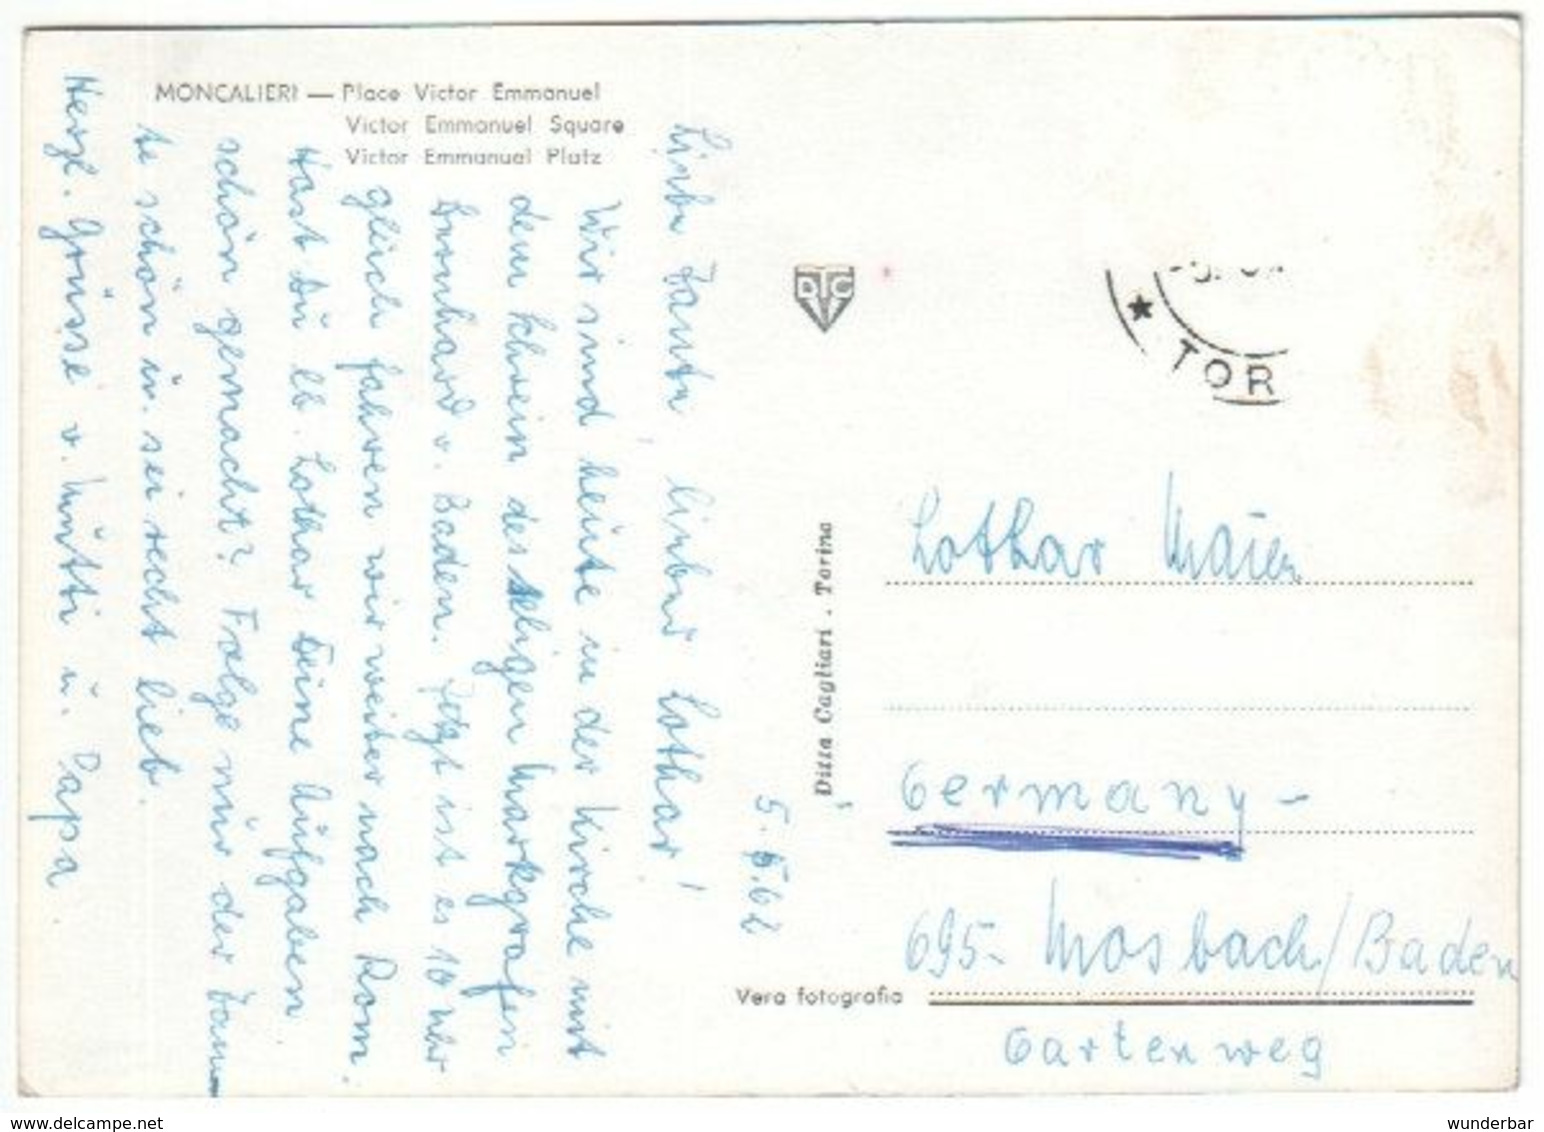 MONCALIERI — Place Victor Emmanuel
Victor Emmanuel Square
Victor Emmanuel Platz
5.5.62
Liebe Tante, lieber Lothar!
Wir sind heute in der Kirche mit
dem Schrein des seligen Markgrafen
Bernhard v. Baden. Jetzt ist es 10 Uhr
gleich fahren wir weiter nach Rom.
Hast Du lb. Lothar Deine Aufgaben
schön gemacht? Folge nur der Tan-
te schön u. sei recht lieb.
Herzl. Grüsse v. Mutti u. Papa.
DTC
★ TOR
Ditta Cagliari . Torino
Vera fotografia
Lothar
Germany -
695- Mosbach/Baden
Gartenweg
www.delcampe.net
wunderbar